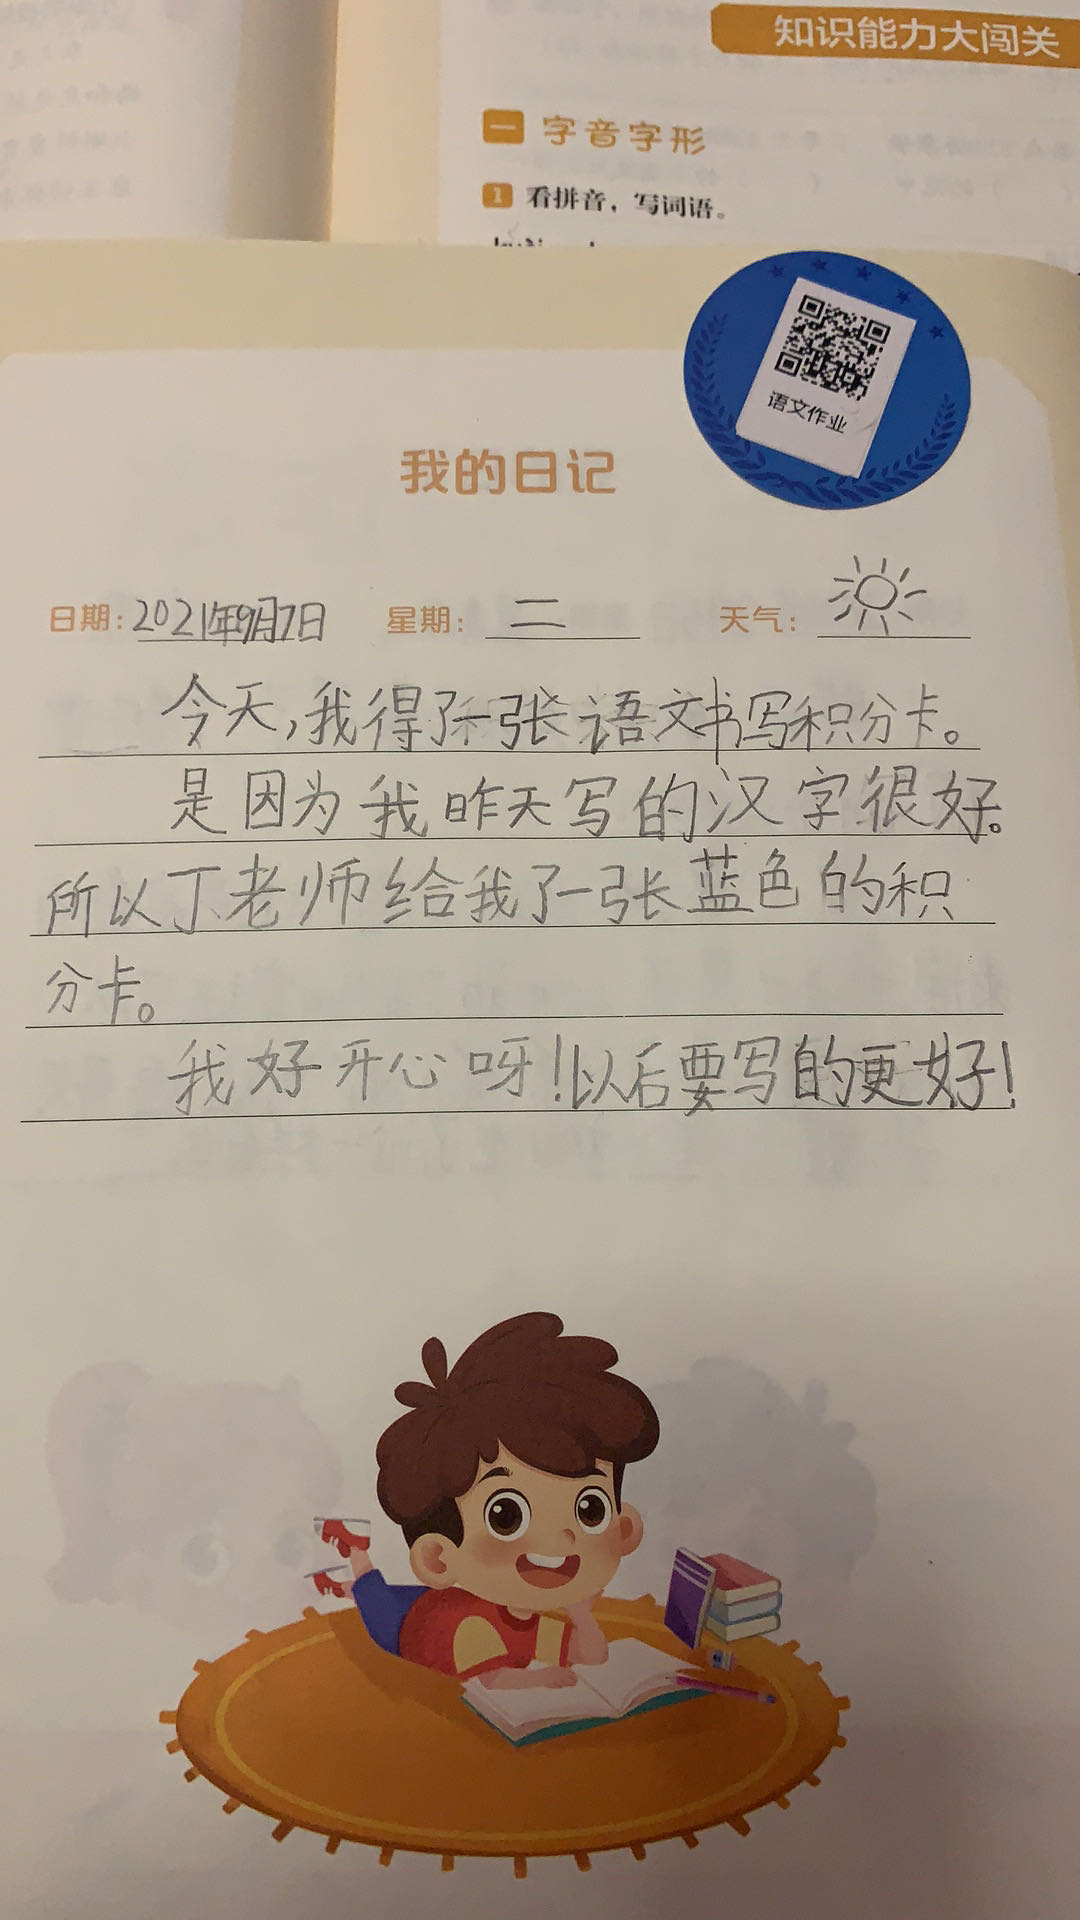 知识能力大闯关
一 字音字形
1 看拼音，写词语。
语文作业
我的日记
日期：2021年9月7日 星期：二 天气：
今天，我得了一张语文书写积分卡。
是因为我昨天写的汉字很好。
所以丁老师给我了一张蓝色的积
分卡。
我好开心呀！以后要写的更好！